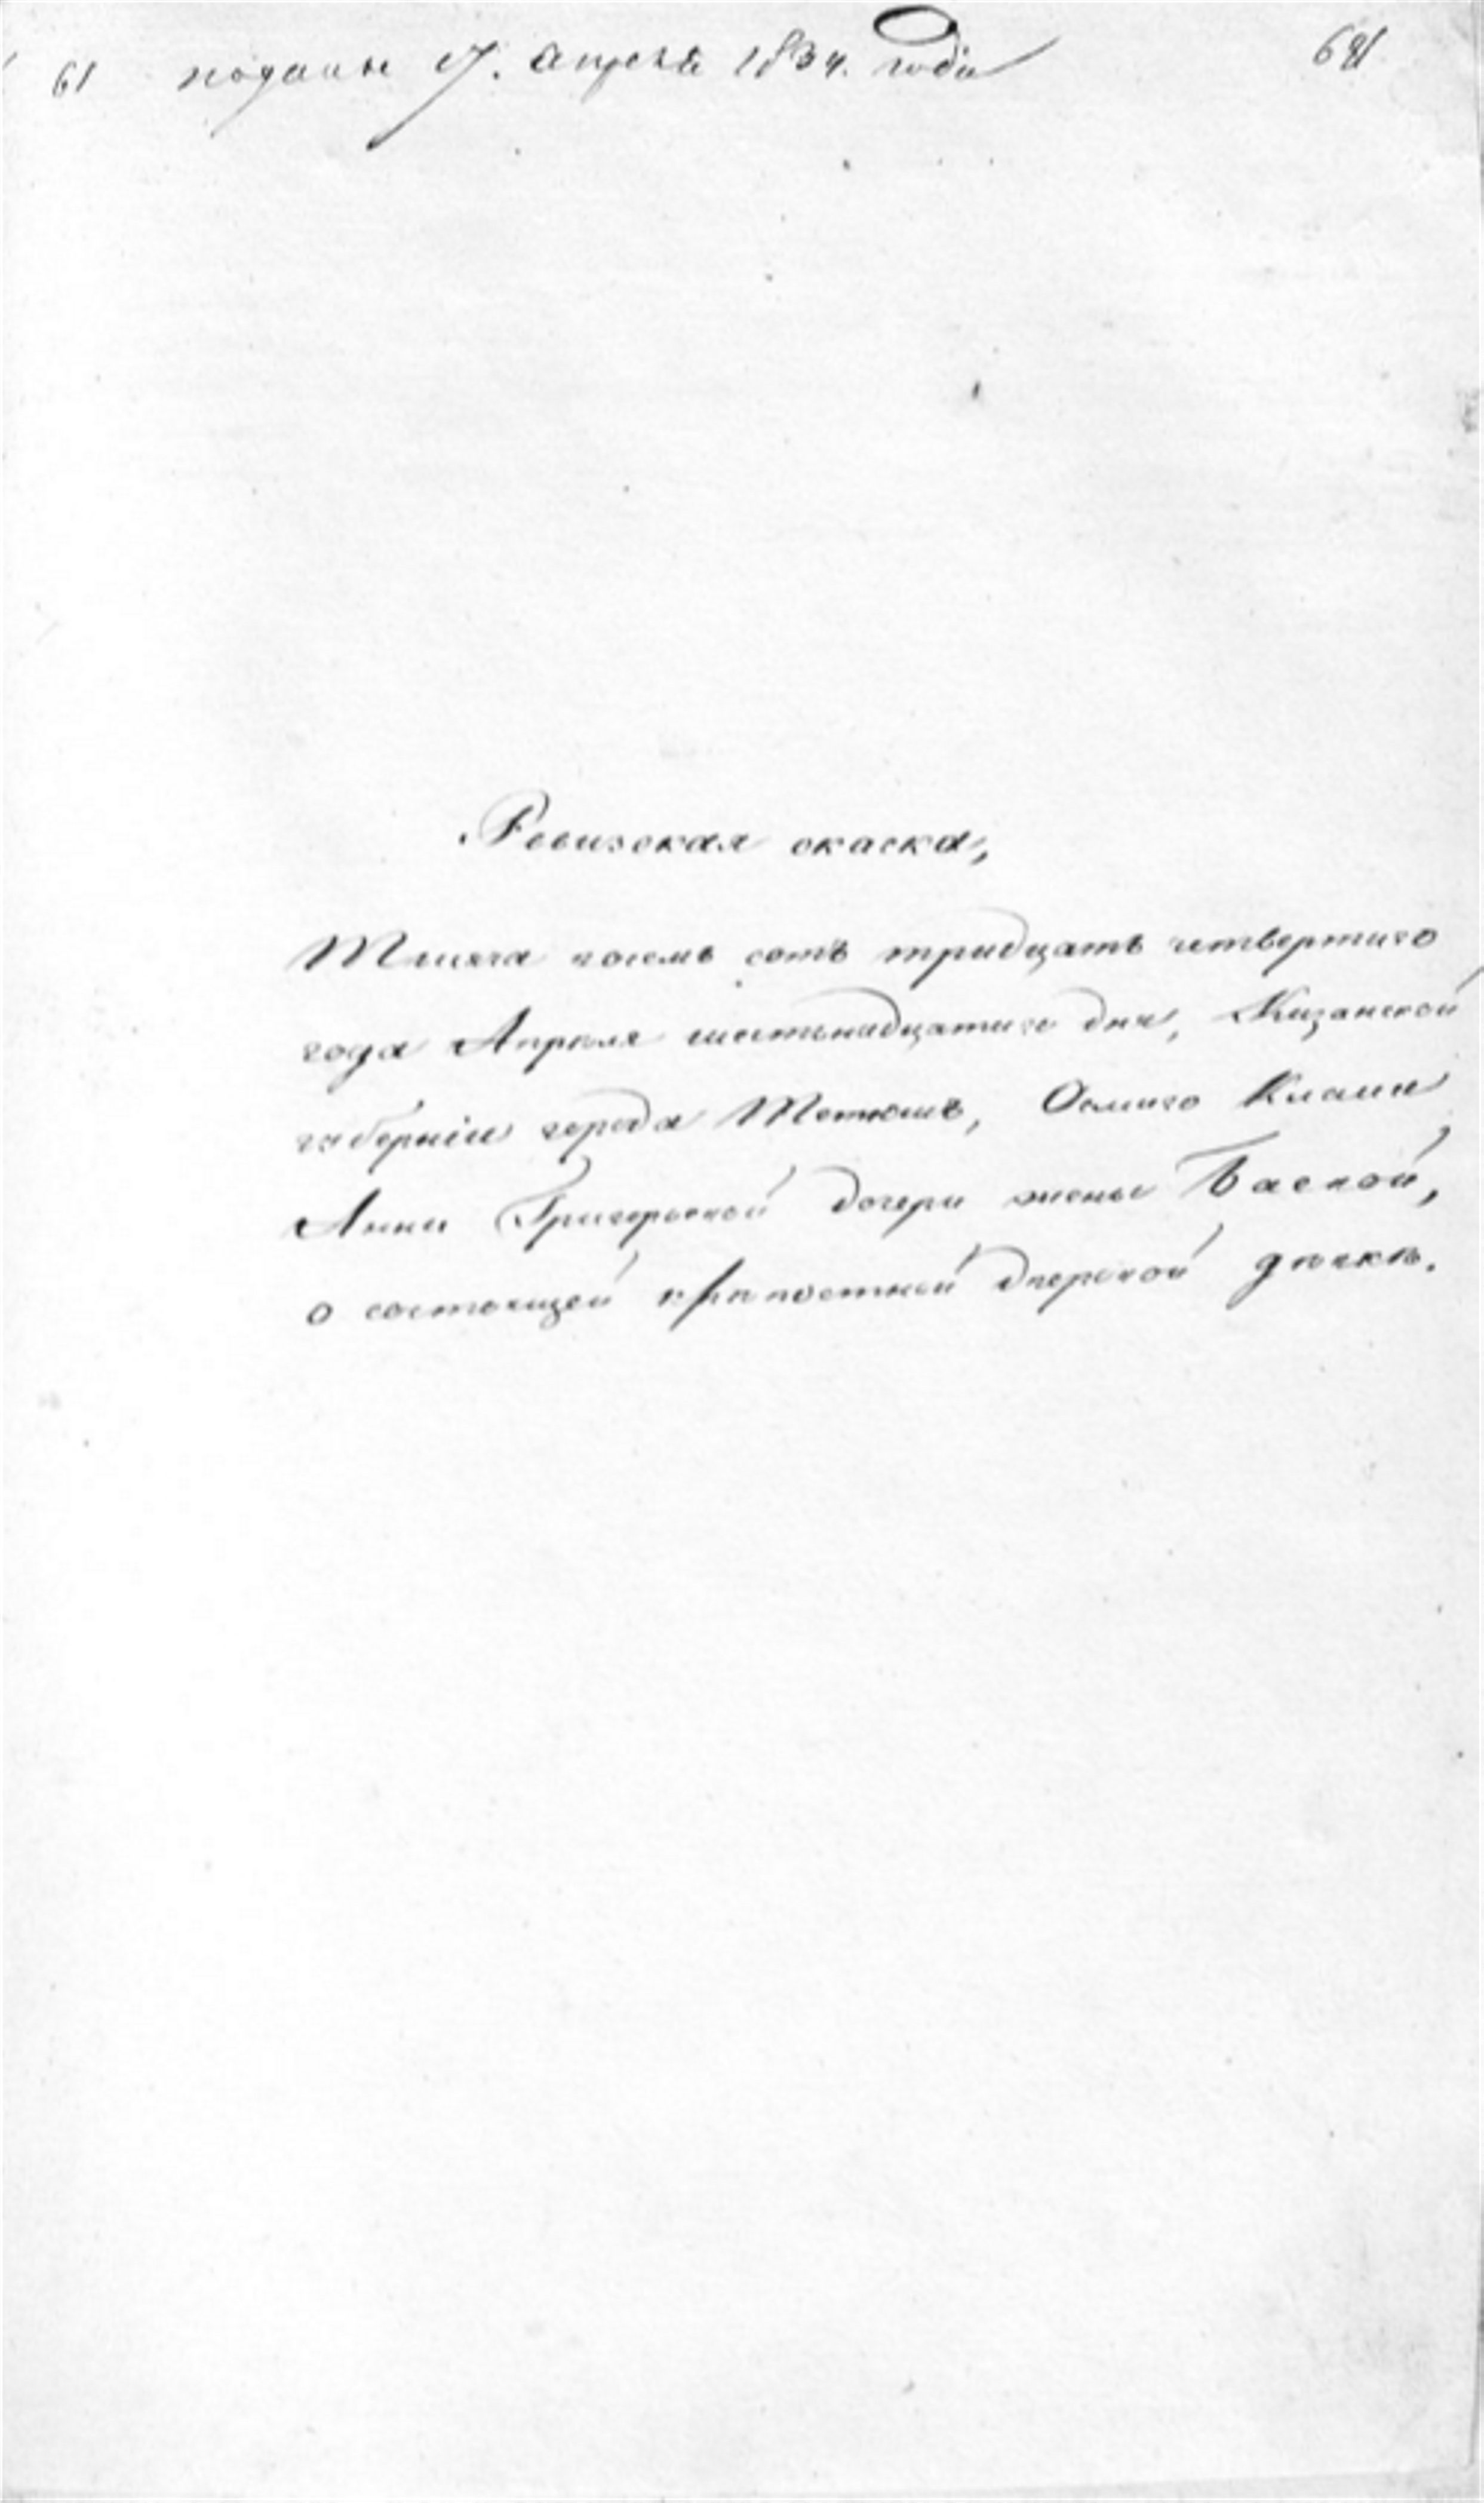 61 подана 17. апреля 1834. года 681
Ревизская скаска,
Тысяча восемь сотъ тридцать четвертаго
года Апреля шестьнадцатаго дня, Казанской
губерніи города Тетюшъ, Осмаго Класса
Анны Григорьевой дочери жены
о состоящей крѣпостной дворовой дѣвкѣ.